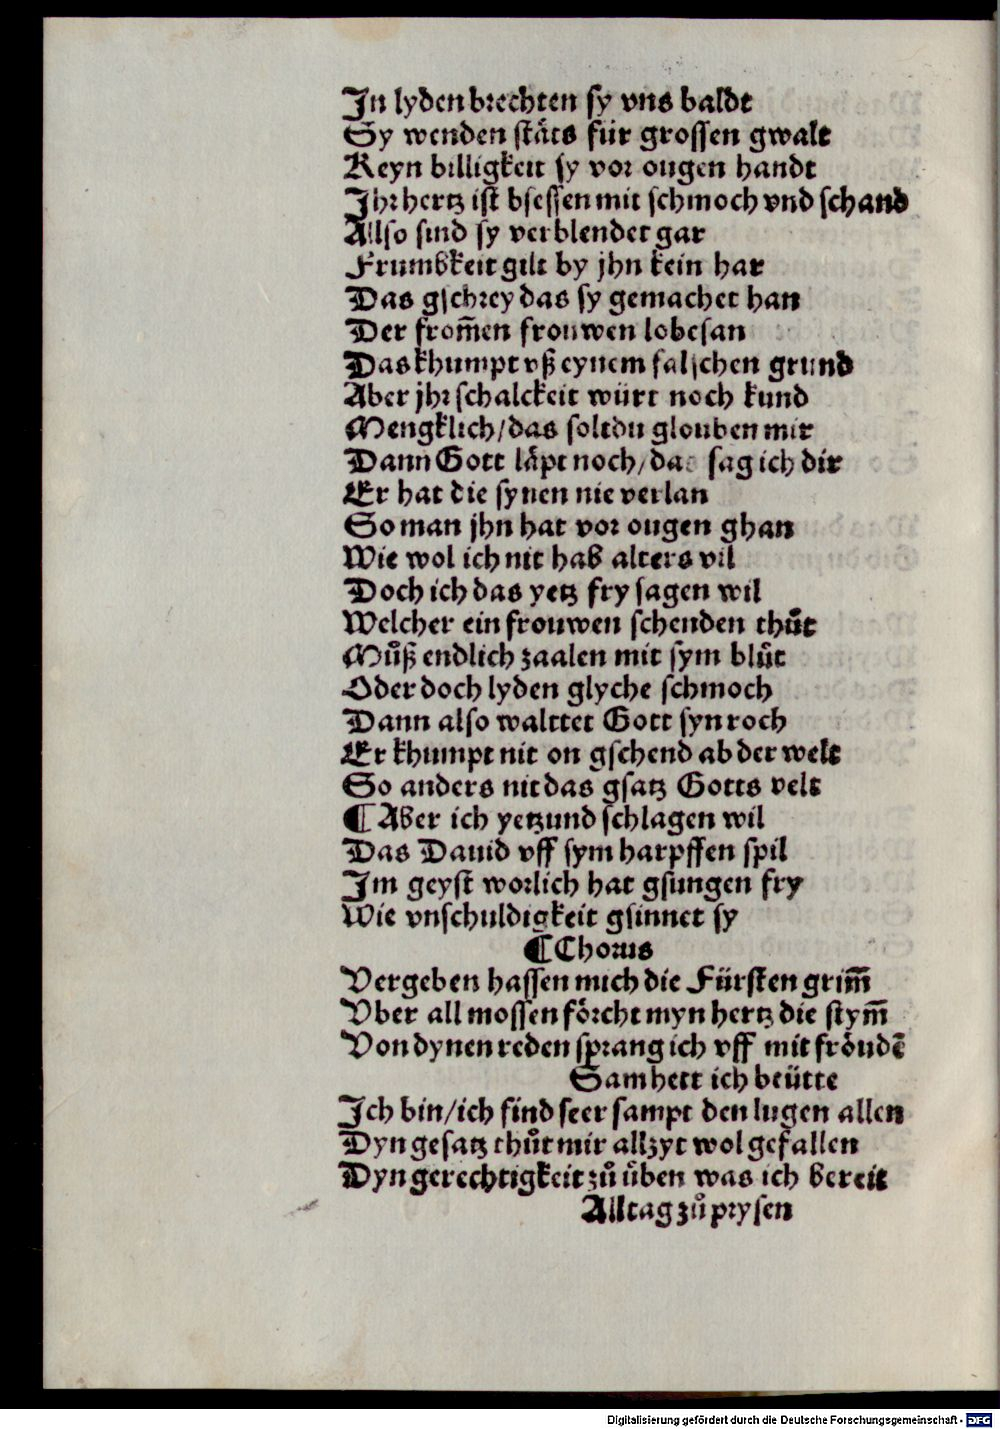 Jn lyden brechten sy vns baldt
Sy wenden stäts für grossen gwalt
Keyn billigkeit sy vor ougen handt
Jhr hertz ist bsessen mit schmoch vnd schand
Allso sind sy verblendet gar
Frumbkeit gilt by jhn kein har
Das gschrey das sy gemachet han
Der from̃en frouwen lobesan
Das khumpt vß eynem falschen grund
Aber jhr schalckeit würt noch kund
Mengklich/das soltdu glouben mir
Dann Gott läpt noch/das sag ich dir
Er hat die synen nie verlan
So man jhn hat vor ougen ghan
Wie wol ich nit hab alters vil
Doch ich das yetz fry sagen wil
Welcher ein frouwen schenden thůt
Můß endlich zaalen mit sym blůt
Oder doch lyden glyche schmoch
Dann also walttet Gott syn roch
Er khumpt nit on gschend ab der welt
So anders nit das gsatz Gotts velt
¶Aber ich yetzund schlagen wil
Das Dauid vff sym harpffen spil
Jm geyst worlich hat gsungen fry
Wie vnschuldigkeit gsinnet sy
¶Chorus
Vergeben hassen mich die Fürsten grim̃
Vber all mossen förcht myn hertz die stym̃
Von dynen reden sprang ich vff mit fröudẽ
Sam hett ich beütte
Jch bin/ich find seer sampt den lugen allen
Dyn gesatz thůt mir allzyt wol gefallen
Dyn gerechtigkeit zů üben was ich bereit
Alltag zů prysen
Digitalisierung gefördert durch die Deutsche Forschungsgemeinschaft - DFG